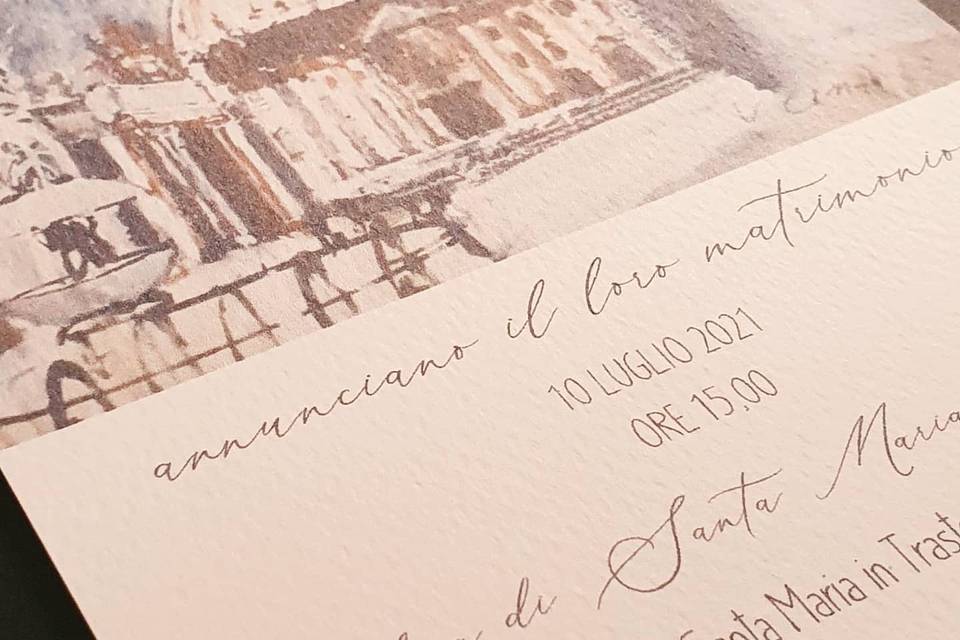 annunciano il loro matrimonio
10 LUGLIO 2021
ORE 15,00
di Santa Maria
Maria in